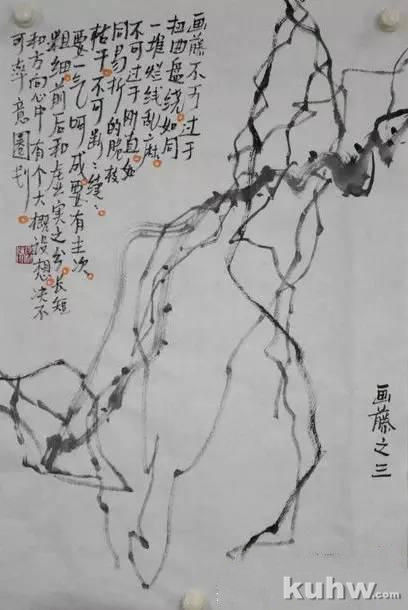 画藤不可过于
扭曲盘绕如同
一堆烂线乱麻
不可过于刚直如
同易折的脆枝
枯干不可断断续续
要一气呵成要有主次
粗细前后和虚实之分长短
和方向心中有个大概设想决不
可率意
画藤之三
kuhw.com